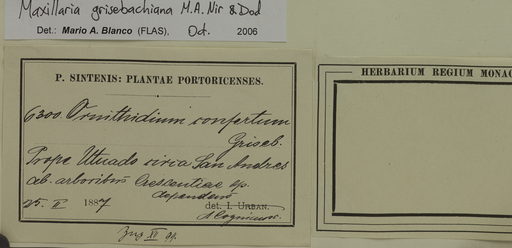 Maxillaria grisebachiana M.A. Nir & Dod
Det.: Mario A. Blanco (FLAS), Oct. 2006
P. SINTENIS: PLANTAE PORTORICENSES.
6300. Ornithidium confertum
Griseb.
Prope Utuado circa San Andres
ab. arboribus Crescentiae sp.
dependens
25. II 1887 det. I. URBAN.
A Cogniaux.
HERBARIUM REGIUM MONAC